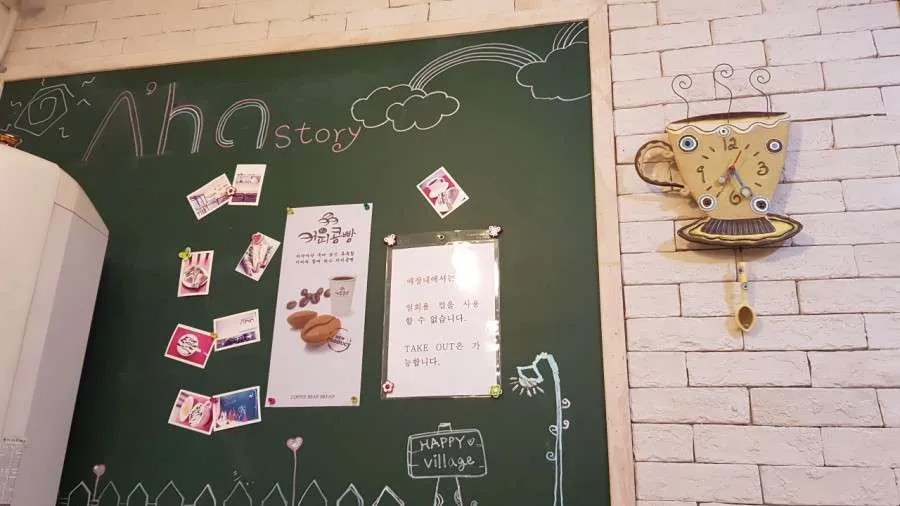 A'ha story
커피콩빵
NEW PRODUCT
COFFEE BEAN BREAD
매장내에서는
일회용 컵을 사용
할 수 없습니다.
TAKE OUT은 가
능합니다.
HAPPY
village
12
3
6